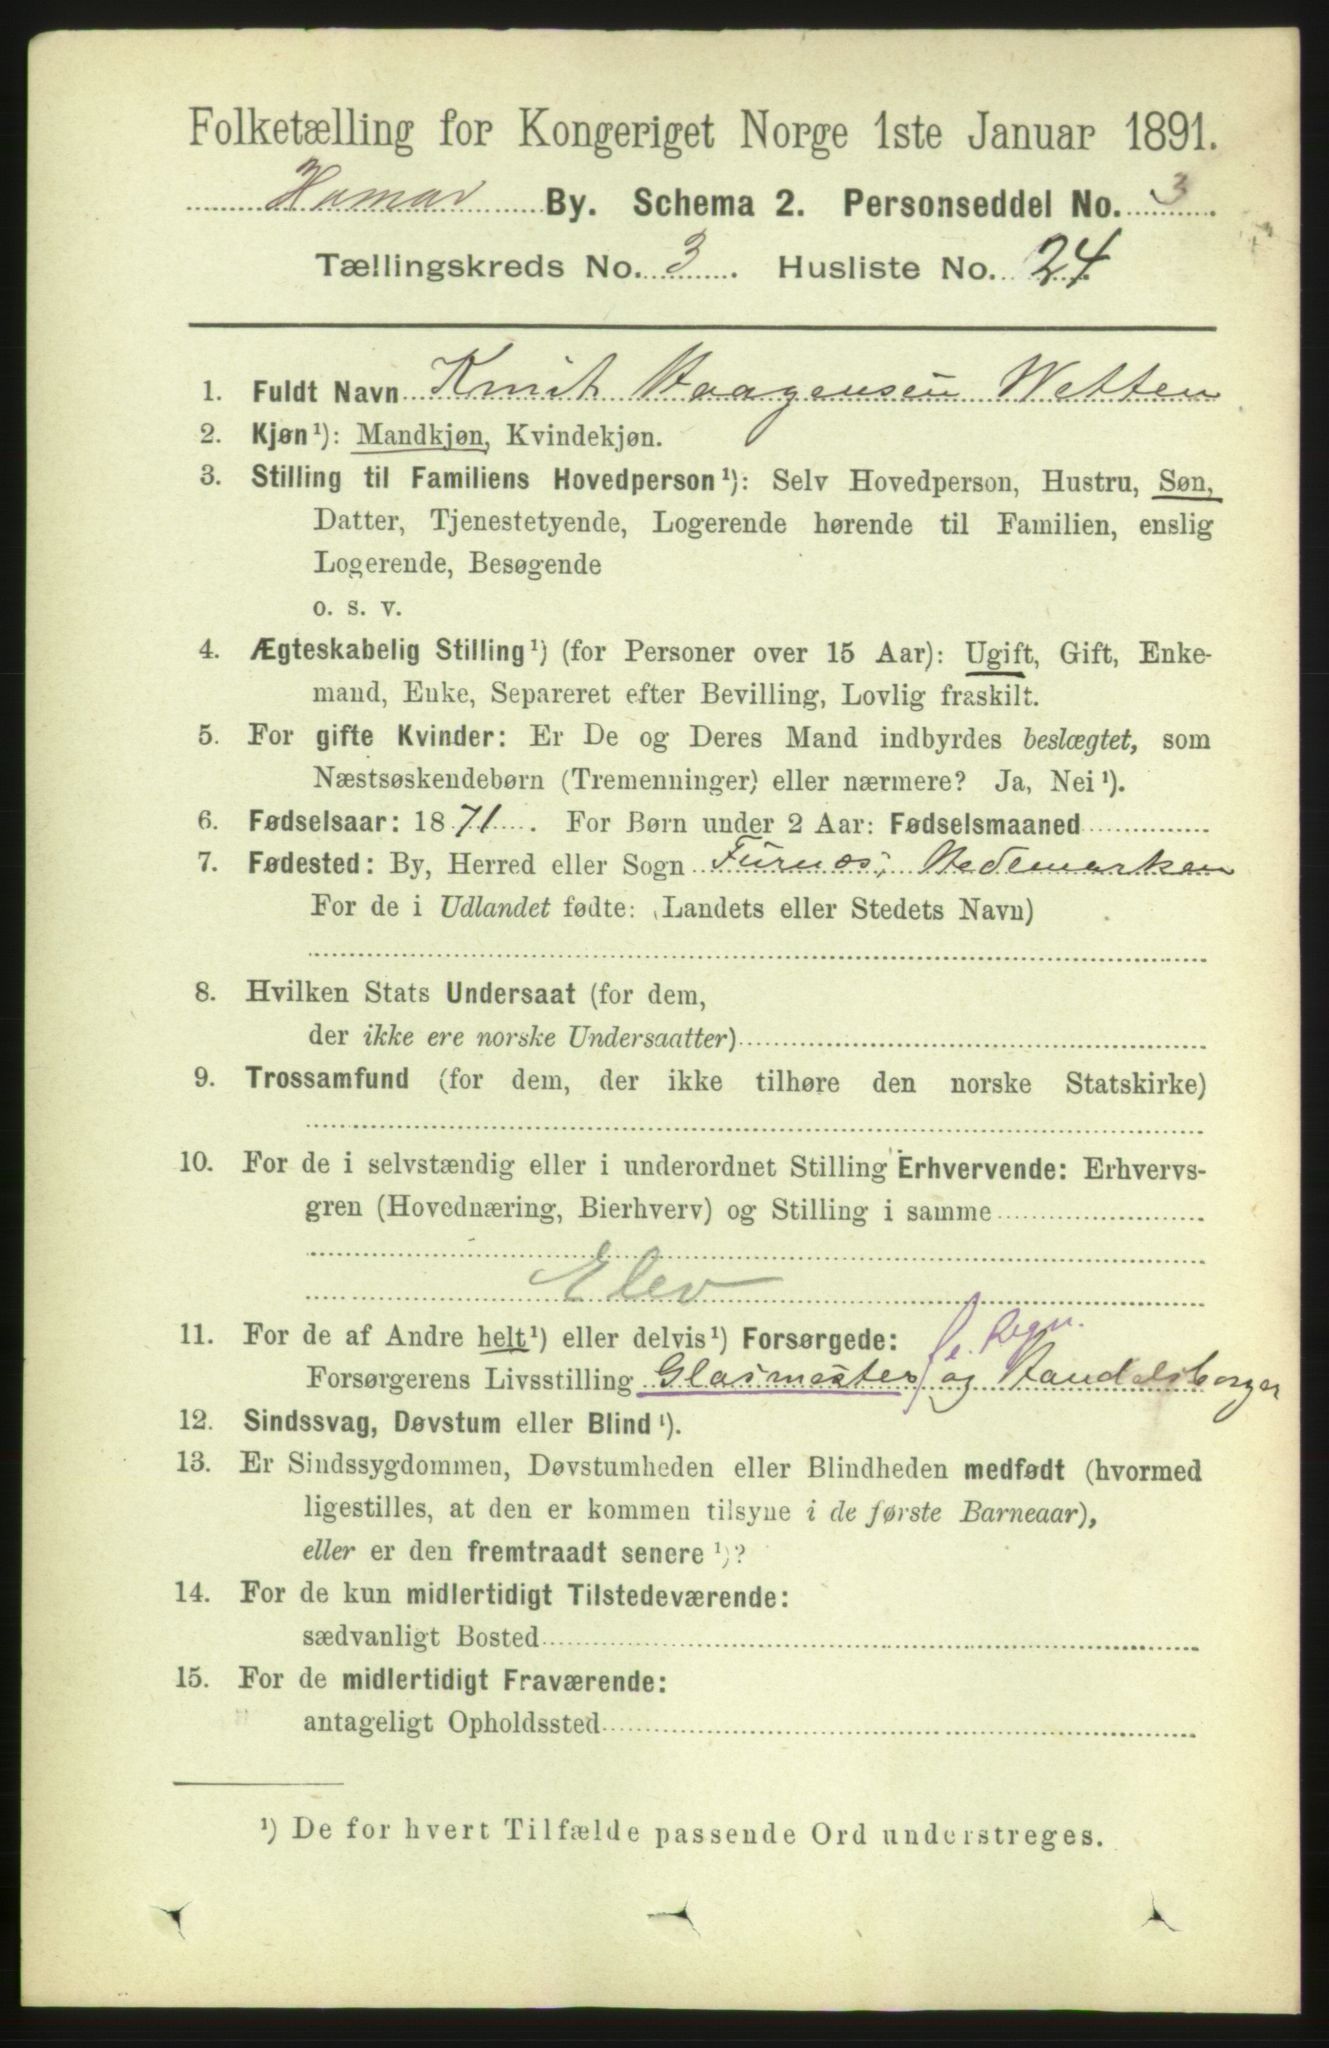 Folketælling for Kongeriget Norge 1ste Januar 1891.
Hamar By. Schema 2. Personseddel No. 3.
Tællingskreds No. 3. Husliste No. 24.
1. Fuldt Navn Knut Haagensen Wetten
2. Kjøn¹): Mandkjøn, Kvindekjøn.
3. Stilling til Familiens Hovedperson¹): Selv Hovedperson, Hustru, Søn,
Datter, Tjenestetyende, Logerende hørende til Familien, enslig
Logerende, Besøgende
o. s. v.
4. Ægteskabelig Stilling¹) (for Personer over 15 Aar): Ugift, Gift, Enke-
mand, Enke, Separeret efter Bevilling, Lovlig fraskilt.
5. For gifte Kvinder: Er De og Deres Mand indbyrdes beslægtet, som
Næstsøskendebørn (Tremenninger) eller nærmere? Ja, Nei¹).
6. Fødselsaar: 1871. For Børn under 2 Aar: Fødselsmaaned
7. Fødested: By, Herred eller Sogn Furnes, Hedemarken
For de i Udlandet fødte: (Landets eller Stedets Navn)
8. Hvilken Stats Undersaat (for dem,
der ikke ere norske Undersaatter)
9. Trossamfund (for dem, der ikke tilhøre den norske Statskirke)
10. For de i selvstændig eller i underordnet Stilling Erhvervende: Erhvervs-
gren (Hovednæring, Bierhverv) og Stilling i samme
Elev
11. For de af Andre helt¹) eller delvis¹) Forsørgede: f. e. Regn.
Forsørgerens Livsstilling Glasmester og Handelsborger
12. Sindssvag, Døvstum eller Blind¹).
13. Er Sindssygdommen, Døvstumheden eller Blindheden medfødt (hvormed
ligestilles, at den er kommen tilsyne i de første Barneaar),
eller er den fremtraadt senere¹)?
14. For de kun midlertidigt Tilstedeværende:
sædvanligt Bosted
15. For de midlertidigt Fraværende:
antageligt Opholdssted
¹) De for hvert Tilfælde passende Ord understreges.